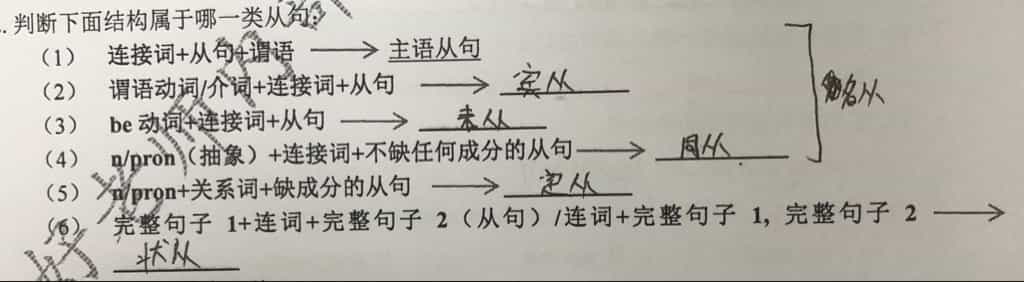 .判断下面结构属于哪一类从句:
(1) 连接词+从句+谓语 ⟶ 主语从句
(2) 谓语动词/介词+连接词+从句 ⟶ 宾从
(3) be 动词+连接词+从句 ⟶ 表从
名从
(4) n/pron（抽象）+连接词+不缺任何成分的从句⟶ 同从
(5) n/pron+关系词+缺成分的从句 ⟶ 定从
(6) 完整句子 1+连词+完整句子 2（从句）/连词+完整句子 1, 完整句子 2 ⟶
状从